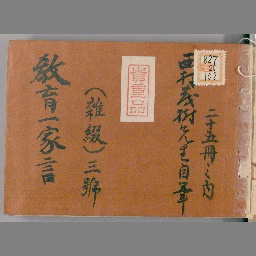 二十五冊之内
西村茂樹先生自筆
貴重品
(雑綴)三號
教育一家言
827
152